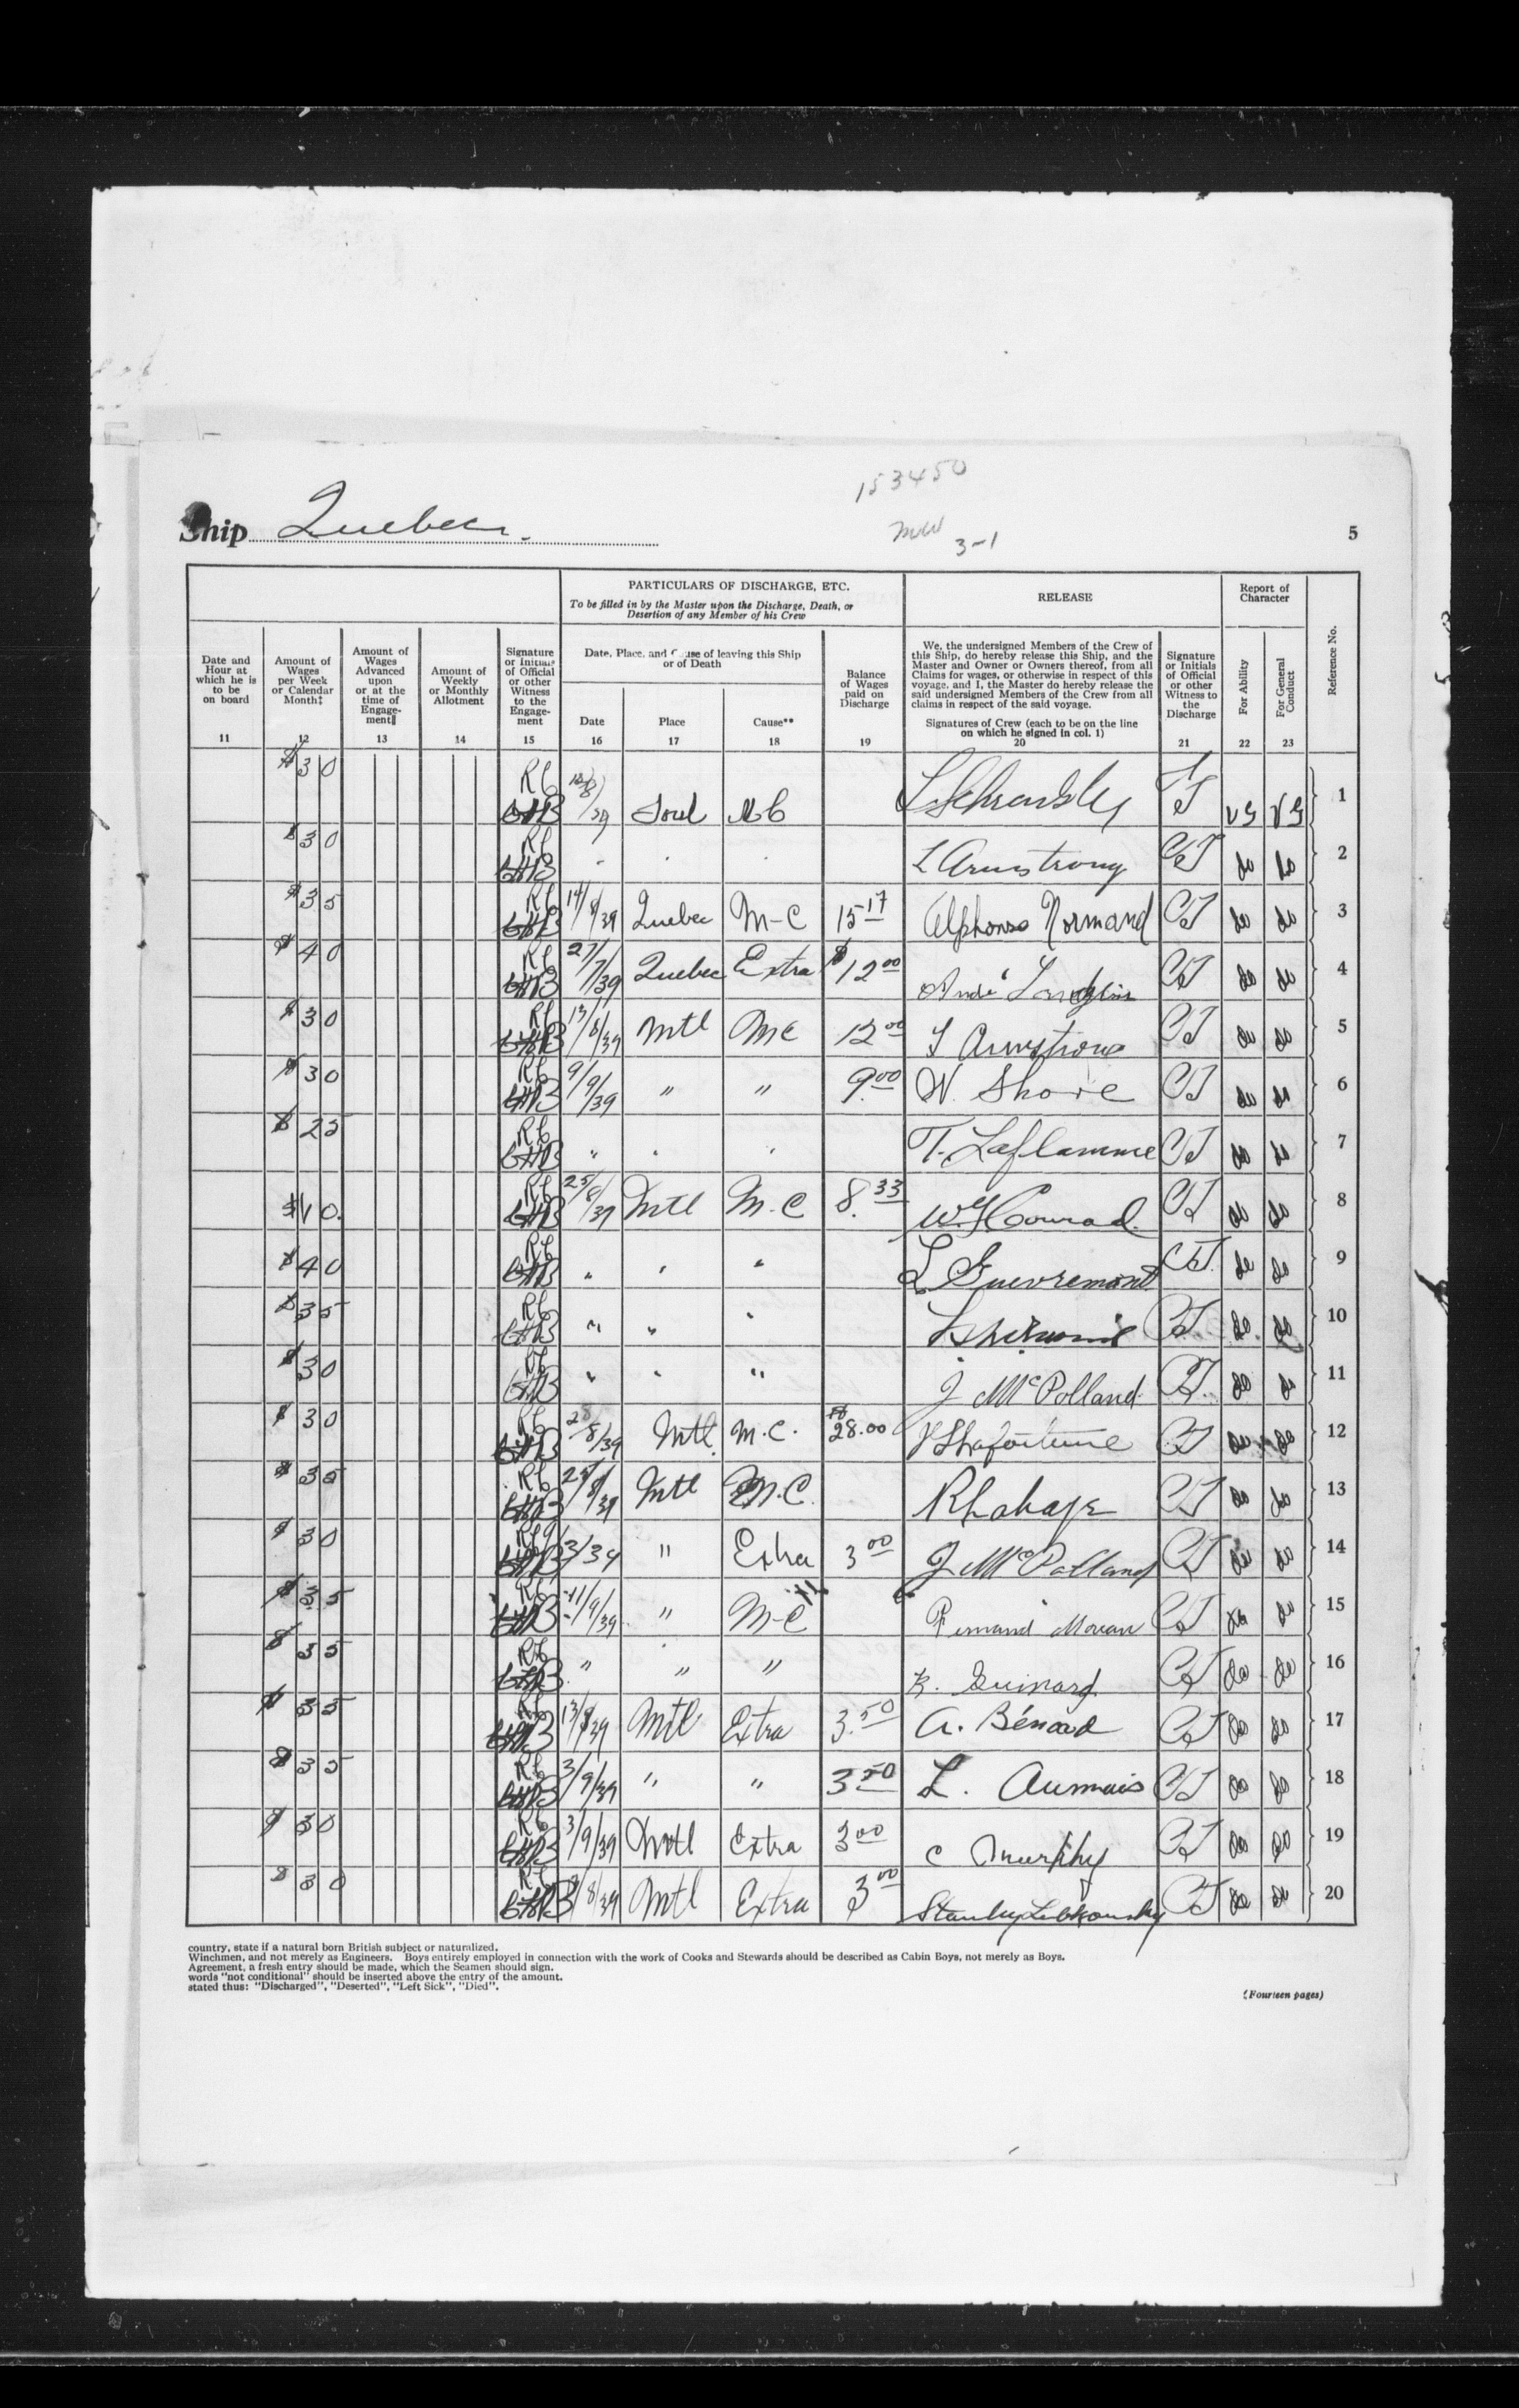 153450
Ship Quebec.
3-1
5
PARTICULARS OF DISCHARGE, ETC.
To be filled in by the Master upon the Discharge, Death, or
Desertion of any Member of his Crew
RELEASE
Report of
Character
Reference No.
Date and
Hour at
which he is
to be
on board
11
Amount of
Wages
per Week
or Calendar
Month‡
12
Amount of
Wages
Advanced
upon
or at the
time of
Engage-
ment‖
13
Amount of
Weekly
or Monthly
Allotment
14
Signature
or Initials
of Official
or other
Witness
to the
Engage-
ment
15
Date, Place, and Cause of leaving this Ship
or of Death
Date
16
Place
17
Cause**
18
Balance
of Wages
paid on
Discharge
19
We, the undersigned Members of the Crew of
this Ship, do hereby release this Ship, and the
Master and Owner or Owners thereof, from all
Claims for wages, or otherwise in respect of this
voyage, and I, the Master do hereby release the
said undersigned Members of the Crew from all
claims in respect of the said voyage.
Signatures of Crew (each to be on the line
on which he signed in col. 1)
20
Signature
or Initials
of Official
or other
Witness to
the
Discharge
21
For Ability
22
For General
Conduct
23
$30 Sorel VG VG 1
$30 L Armstrong CT do do 2
$35 14/8/39 Quebec M-C 15 17 Alphonse Normand CT do do 3
$40 27/7/39 Quebec Extra $12 00 André CT do do 4
$30 Mtl MC 12 00 Armstrong CT do do 5
$30 9/9/39 " " 9.00 W. Shore CT do do 6
$25 " " " T. Laflamme CT do do 7
$10. 25/8/39 Mtl M.C 8.33 Conrad CT do do 8
$40 " " " L Guevremont CT do do 9
$35 " " " CT do do 10
$30 " " " J McPolland CT do do 11
$30 8/39 Mtl M.C. 28.00 CT do do 12
$35 25/8/39 Mtl M.C. CT do do 13
$30 " Extra 3 00 J McPolland CT do do 14
$35 11/9/39 " M-C CT do do 15
$35 " " " CT do do 16
$35 Mtl Extra 3.50 A. Bénard CT do do 17
$35 3/9/39 " " 3 50 L. Aumais CT do do 18
$30 3/9/39 Mtl Extra 3 00 C Murphy CT do do 19
$30 Mtl Extra 3 00 Stanley CT do do 20
country, state if a natural born British subject or naturalized.
Winchmen, and not merely as Engineers. Boys entirely employed in connection with the work of Cooks and Stewards should be described as Cabin Boys, not merely as Boys.
Agreement, a fresh entry should be made, which the Seamen should sign.
words "not conditional" should be inserted above the entry of the amount.
stated thus: "Discharged", "Deserted", "Left Sick", "Died".
(Fourteen pages)